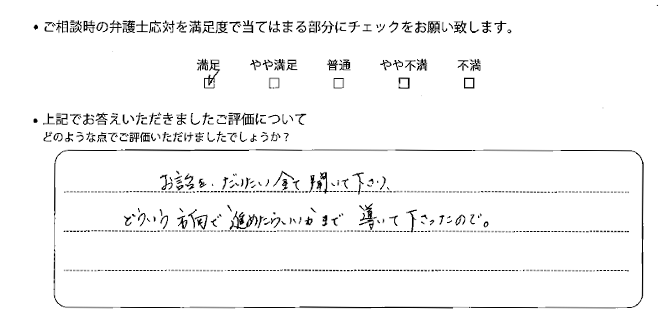 ・ご相談時の弁護士応対を満足度で当てはまる部分にチェックをお願い致します。
満足 やや満足 普通 やや不満 不満
・上記でお答えいただきましたご評価について
どのような点でご評価いただけましたでしょうか？
お話を、だいたい全て聞いて下さり、
どういう方向で進めたらいいかまで導いて下さったので。